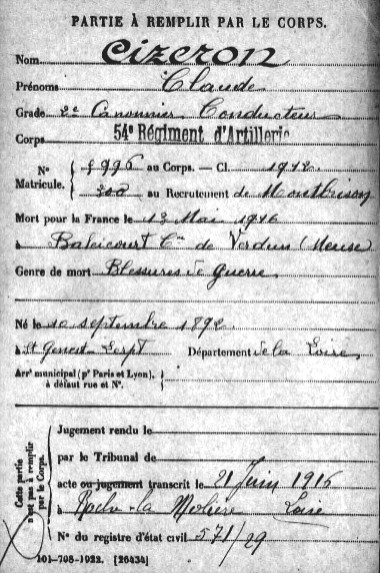 PARTIE À REMPLIR PAR LE CORPS.
Nom CIZERON
Prénoms Claude
Grade 2e Canonnier Conducteur
Corps 54e Régiment d'Artillerie
N° Matricule. { 9996 au Corps. — Cl. 1912
300 au Recrutement de Montbrison
Mort pour la France le 13 Mai 1916
à Baleicourt Cne de Verdun (Meuse)
Genre de mort Blessures de Guerre
Né le 10 septembre 1892
à St Genest-Lerpt Département de la Loire
Arrt municipal (pr Paris et Lyon), à défaut rue et N°.
Cette partie n'est pas à remplir par le Corps.
Jugement rendu le
par le Tribunal de
acte ou jugement transcrit le 21 Juin 1916
à Roche-la-Molière Loire
N° du registre d'état civil 571/29
101-708-1922. [26434]